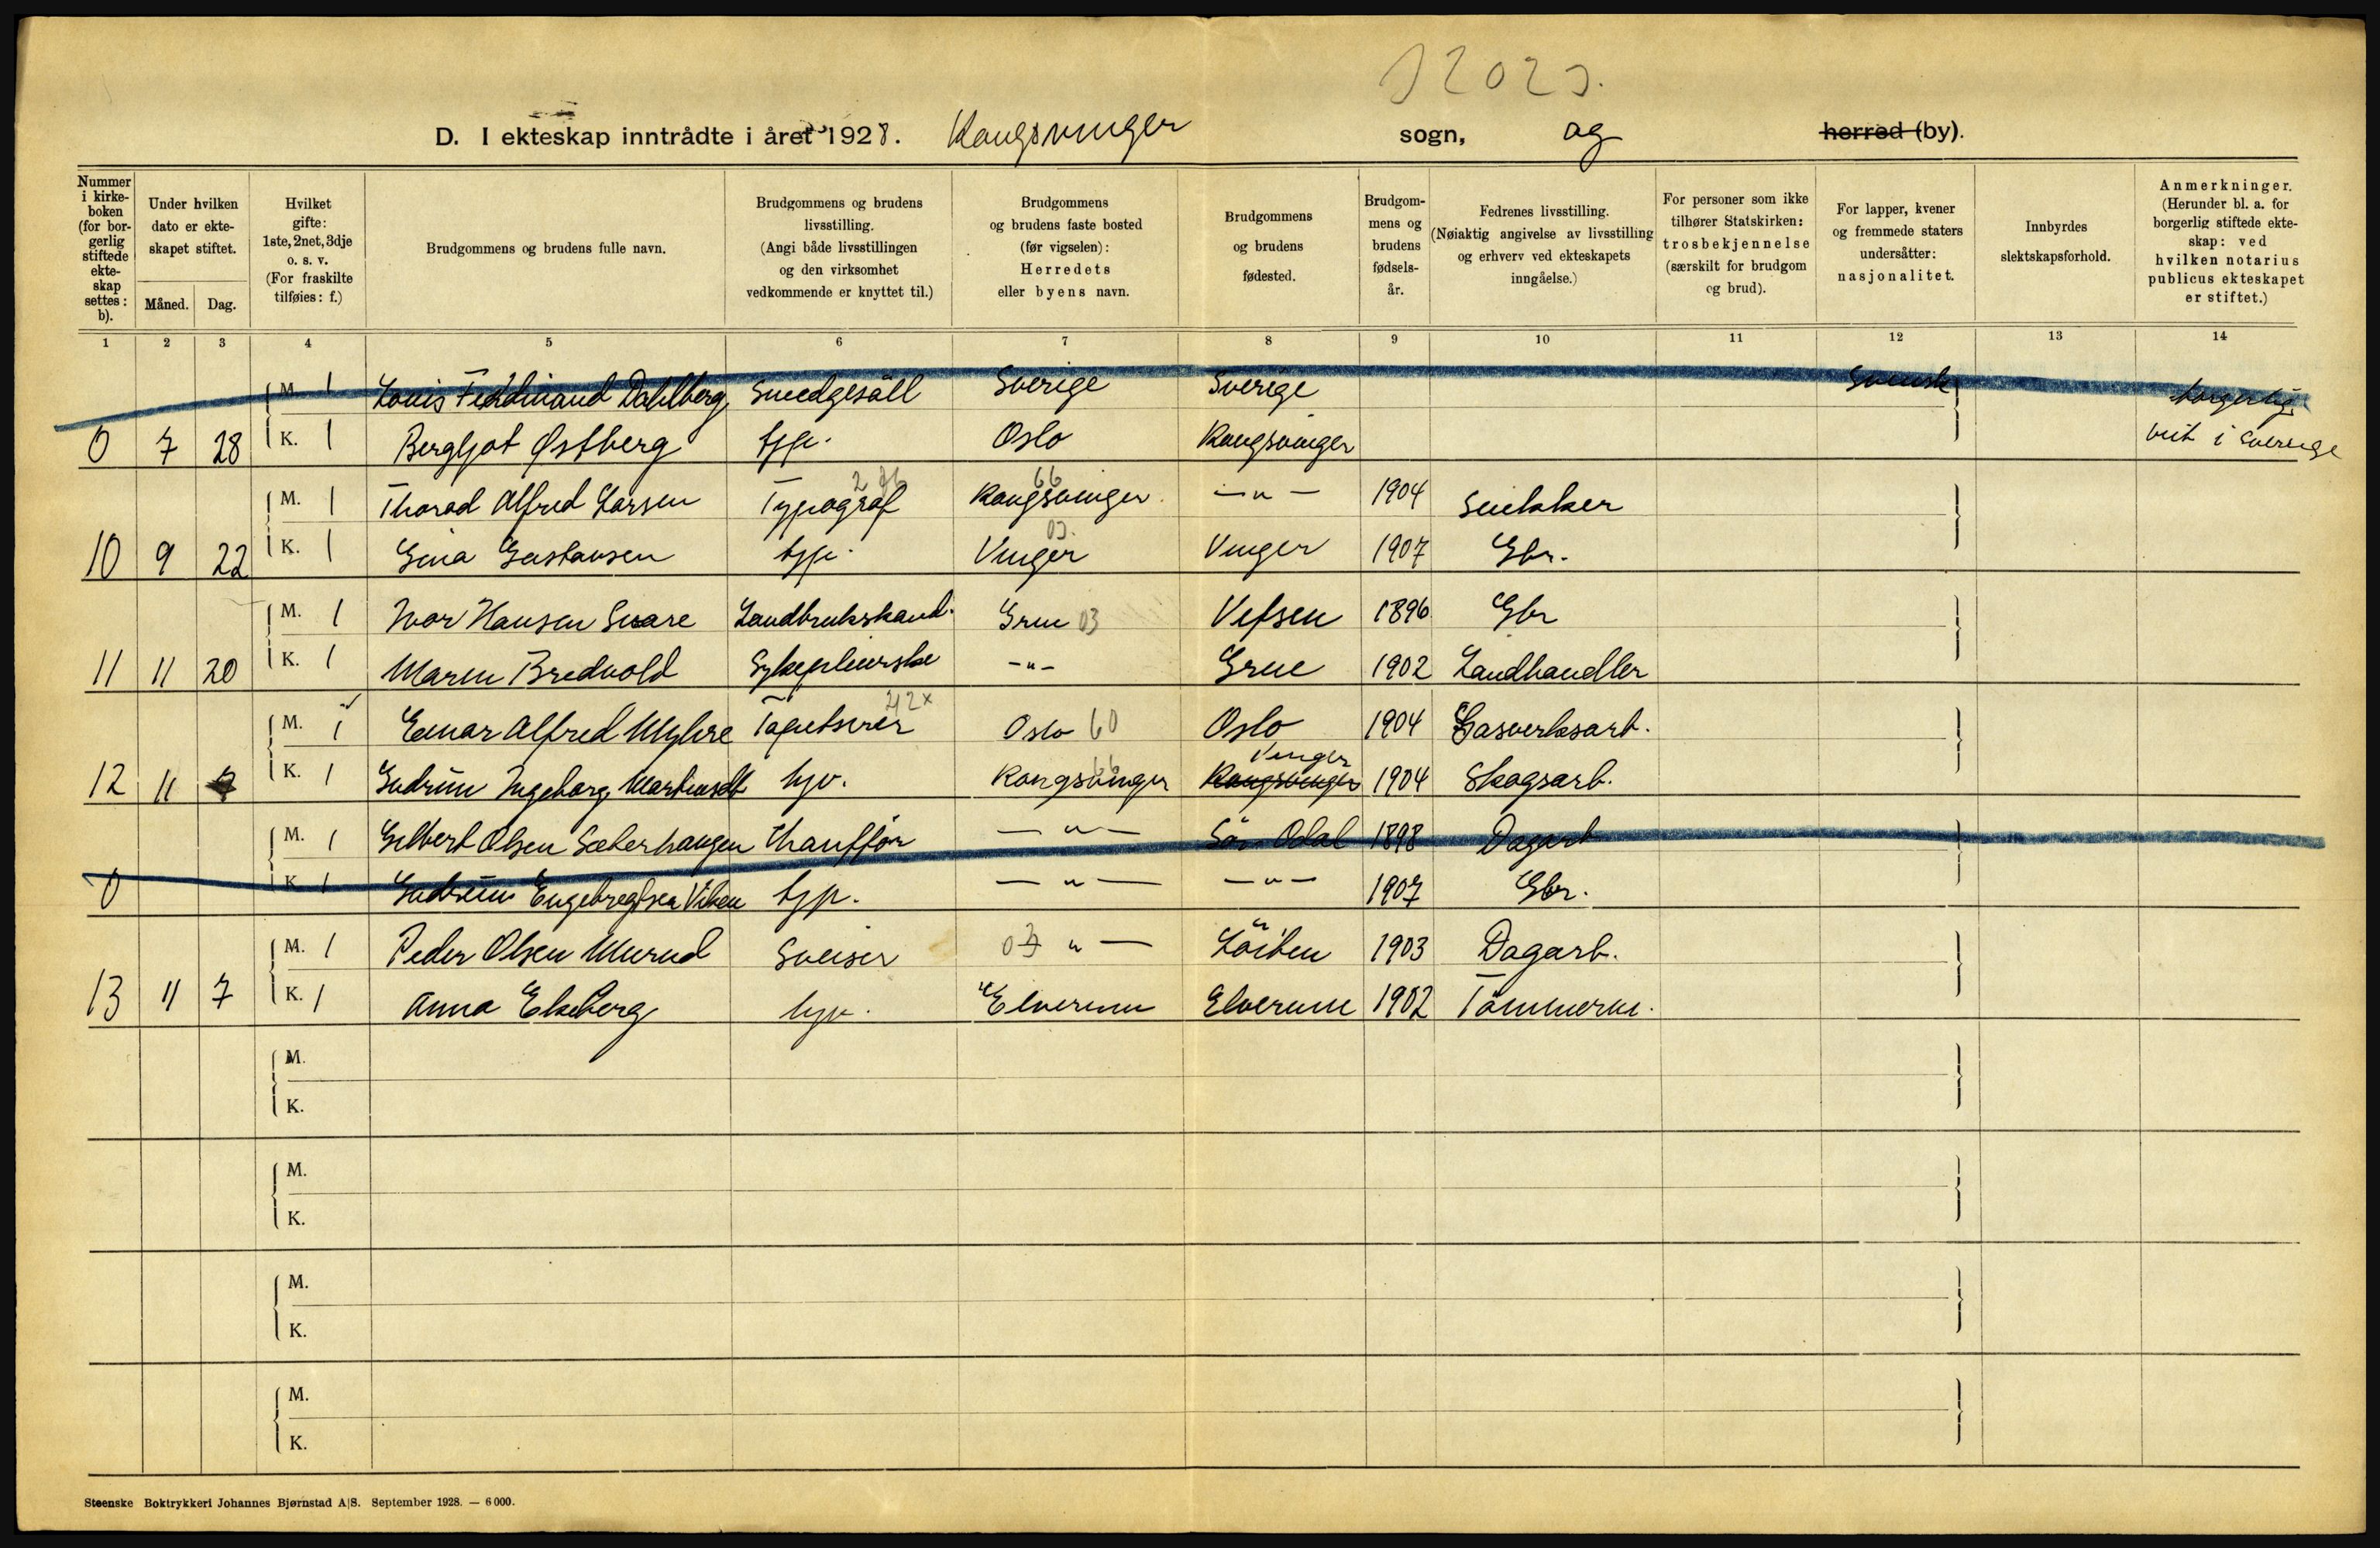 12023.
D. I ekteskap inntrådte i året 1928. Kongsvinger sogn, og herred (by).
Nummer i kirke- boken (for bor- gerlig stiftede ekte- skap settes: b).
Under hvilken dato er ekte- skapet stiftet.
Måned. Dag.
Hvilket gifte: 1ste, 2net, 3dje o. s. v. (For fraskilte tilføies: f.)
Brudgommens og brudens fulle navn.
Brudgommens og brudens livsstilling. (Angi både livsstillingen og den virksomhet vedkommende er knyttet til.)
Brudgommens og brudens faste bosted (før vigselen): Herredets eller byens navn.
Brudgommens og brudens fødested.
Brudgom- mens og brudens fødsels- år.
Fedrenes livsstilling. (Nøiaktig angivelse av livsstilling og erhverv ved ekteskapets inngåelse.)
For personer som ikke tilhører Statskirken: trosbekjennelse (særskilt for brudgom og brud).
For lapper, kvener og fremmede staters undersåtter: nasjonalitet.
Innbyrdes slektskapsforhold.
Anmerkninger. (Herunder bl. a. for borgerlig stiftede ekte- skap: ved hvilken notarius publicus ekteskapet er stiftet.)
1 2 3 4 5 6 7 8 9 10 11 12 13 14
M. 1 Louis Ferdinand Dahlberg Smedgesäll Sverige Sverige Svensk borgerlig
0 7 28 K. 1 Bergljot Østberg tjp. Oslo Kongsvinger viet i Sverige
M. 1 Thorad Alfred Larsen Typograf Kongsvinger 66 — " — 1904 Snekker
10 9 22 K. 1 Gina Gustavsen tjp. Vinger 03. Vinger 1907 Gbr.
M. 1 Ivar Hansen Snare Landbrukskand. Grue 03 Vefsen 1896 Gbr
11 11 20 K. 1 Maren Bredvold Sykepleierske - " - Grue 1902 Landhandler
M. 1 Einar Alfred Myhre Tapetserer 42x Oslo 60 Oslo 1904 Gasverksarb.
12 11 K. 1 Gudrun Ingeborg Martinsdt hjv. Kongsvinger Kongsvinger Vinger 1904 Skogsarb.
M. 1 Gilbert Olsen Sæterhaugen Chauffør — " — Sør Odal 1898 Dagarb
0 K. 1 Gudrun Engebregtsen Viken tjp. — " — — " — 1907 Gbr.
M. 1 Peder Olsen Murud Sveiser 03 " — Löiten 1903 Dagarb.
13 11 7 K. 1 Anna Ekeberg hjv. Elverum Elverum 1902 Tømmerm.
M.
K.
M.
K.
M.
K.
M.
K.
Steenske Boktrykkeri Johannes Bjørnstad A|S. September 1928. — 6000.